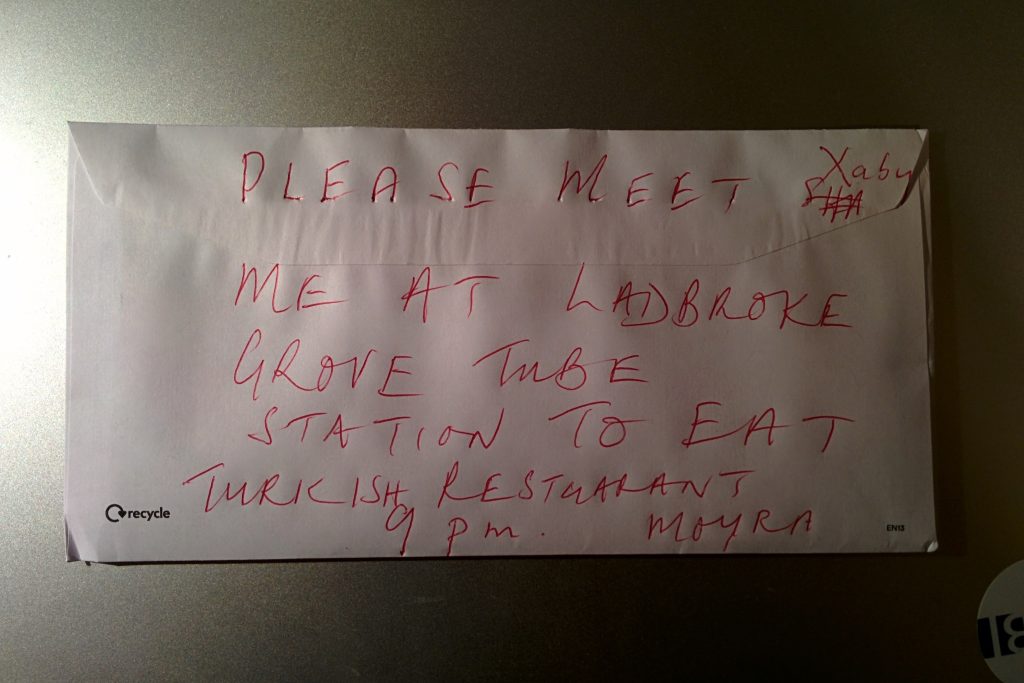 Xabu
PLEASE MEET
ME AT LADBROKE
GROVE TUBE
STATION TO EAT
TURKISH RESTUARANT
9 pm. MOYRA
recycle
EN13
18